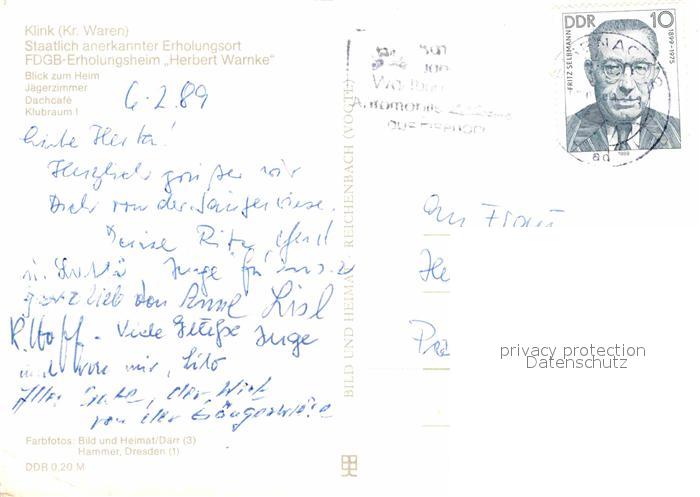 Klink (Kr. Waren)
Staatlich anerkannter Erholungsort
FDGB-Erholungsheim „Herbert Warnke"
Blick zum Heim
Jägerzimmer
Dachcafé
Klubraum I
6.2.89
Liebe Herta!
Herzlich grüßen wir
Dich von der Sängerwiese.
Deine Rita,
Inge
ganz lieb von Anne Lisl
Viele Grüße Inge
und von mir,
Alles Gute, der Wirt
von der Sängerwiese
Farbfotos: Bild und Heimat/Darr (3)
Hammer, Dresden (1)
DDR 0,20 M
BILD UND HEIMAT REICHENBACH (VOGTL)
DDR 10
FRITZ SELBMANN
1899-1975
1989
Automobile
aus Eisenach
An Frau
He
privacy protection
Datenschutz